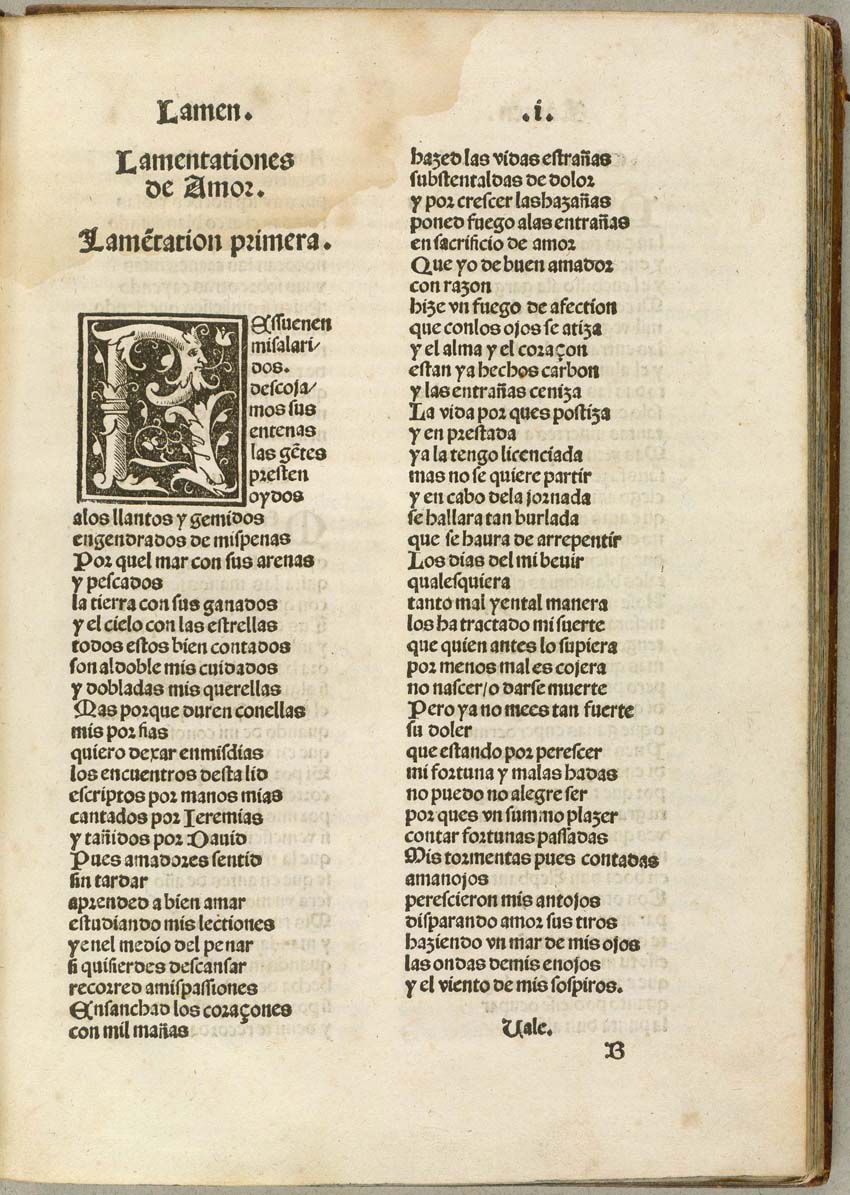 Lamen.
.i.
Lamentationes
de Amor.
Lamẽtation primera.
REssuenen
mis alari/
dos.
descoja/
mos sus
entenas
las gẽtes
presten
oydos
alos llantos y gemidos
engendrados de mis penas
Por quel mar con sus arenas
y pescados
la tierra con sus ganados
y el cielo con las estrellas
todos estos bien contados
son al doble mis cuidados
y dobladas mis querellas
Mas porque duren conellas
mis porfias
quiero dexar enmis dias
los encuentros desta lid
escriptos por manos mias
cantados por Ieremias
y tañidos por Dauid
Pues amadores sentid
sin tardar
aprended a bien amar
estudiando mis lectiones
y enel medio del penar
si quisierdes descansar
recorred amis passiones
Ensanchad los coraçones
con mil mañas
hazed las vidas estrañas
substentaldas de dolor
y por crescer las hazañas
poned fuego alas entrañas
en sacrificio de amor
Que yo de buen amador
con razon
hize vn fuego de afection
que conlos ojos se atiza
y el alma y el coraçon
estan ya hechos carbon
y las entrañas ceniza
La vida por ques postiza
y en prestada
ya la tengo licenciada
mas no se quiere partir
y en cabo dela jornada
se hallara tan burlada
que se haura de arrepentir
Los dias del mi beuir
qualesquiera
tanto mal y ental manera
los ha tractado mi suerte
que quien antes lo supiera
por menos mal es cojera
no nascer/o darse muerte
Pero ya no mees tan fuerte
su doler
que estando por perescer
mi fortuna y malas hadas
no puedo no alegre ser
por ques vn summo plazer
contar fortunas passadas
Mis tormentas pues contadas
amanojos
perescieron mis antojos
disparando amor sus tiros
haziendo vn mar de mis ojos
las ondas demis enojos
y el viento de mis sospiros.
Uale.
B